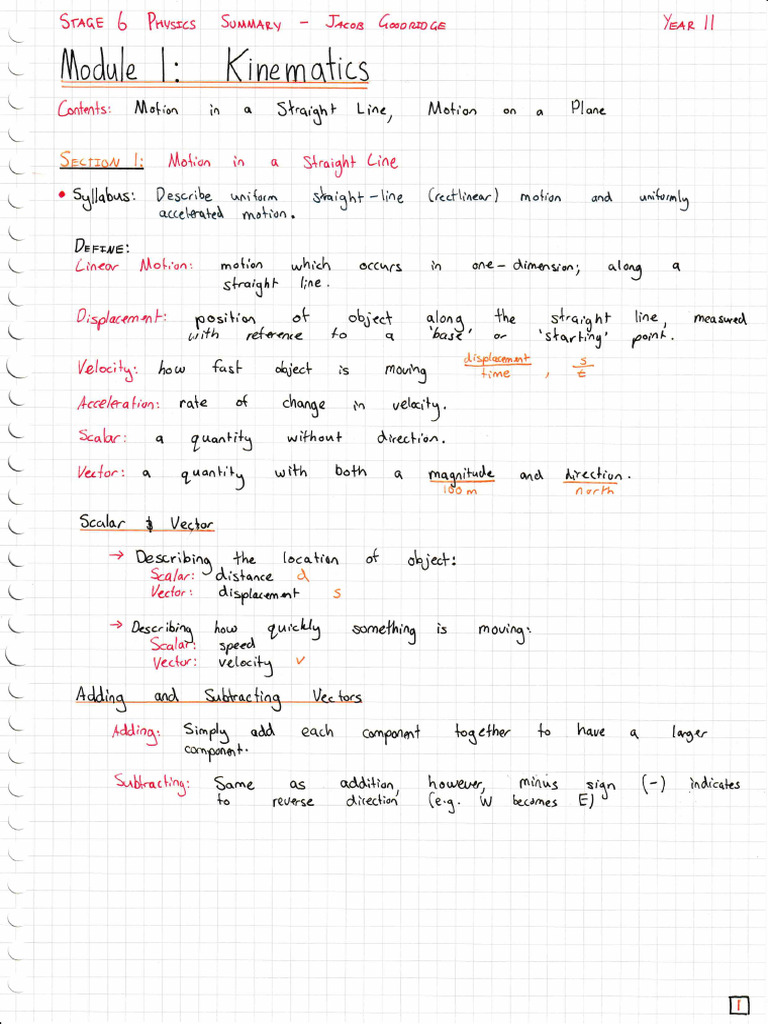 STAGE 6 PHYSICS SUMMARY – JACOB GOODRIDGE YEAR 11
Module 1: Kinematics
Contents: Motion in a Straight Line, Motion on a Plane
SECTION 1: Motion in a Straight Line
• Syllabus: Describe uniform straight-line (rectlinear) motion and uniformly
accelerated motion.
DEFINE:
Linear Motion: motion which occurs in one-dimension; along a
straight line.
Displacement: position of object along the straight line, measured
with reference to a 'base' or 'starting' point.
Velocity: how fast object is moving displacement/time, s/t
Acceleration: rate of change in velocity.
Scalar: a quantity without direction.
Vector: a quantity with both a magnitude and direction.
100m north
Scalar & Vector
→ Describing the location of object:
Scalar: distance d
Vector: displacement s
→ Describing how quickly something is moving:
Scalar: speed
Vector: velocity v
Adding and Subtracting Vectors
Adding: Simply add each component together to have a larger
component.
Subtracting: Same as addition, however, minus sign (-) indicates
to reverse direction (e.g. W becomes E)
1